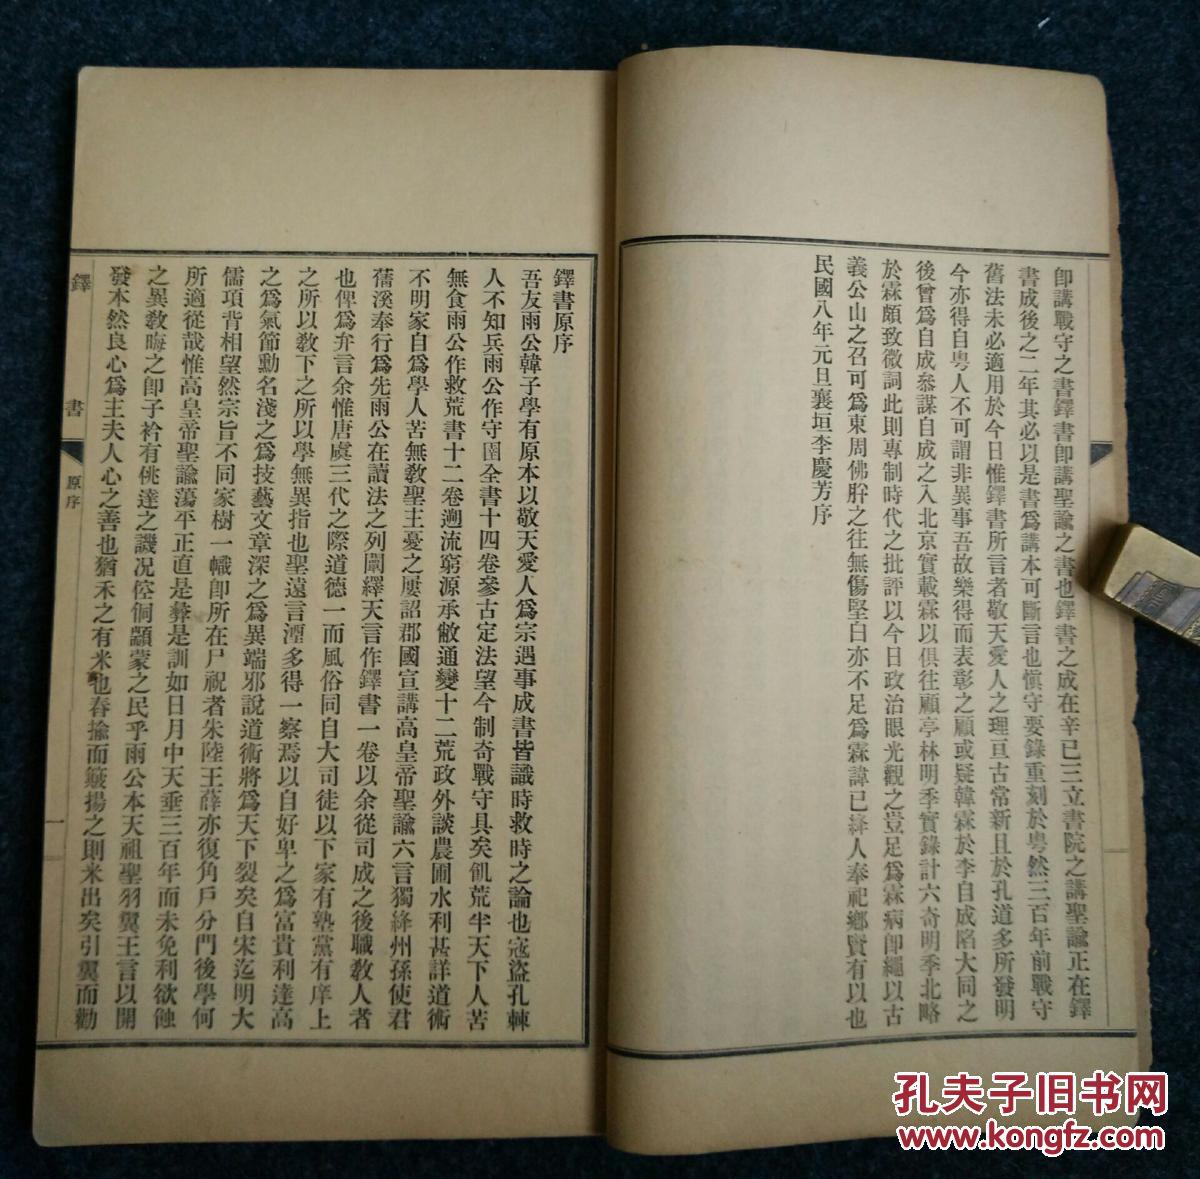 即講戰守之書鐸書即講聖諭之書也鐸書之成在辛巳三立書院之講聖諭正在鐸
書成後之二年其必以是書爲講本可斷言也愼守要錄重刻於粤然三百年前戰守
舊法未必適用於今日惟鐸書所言者敬天愛人之理亘古常新且於孔道多所發明
今亦得自粤人不可謂非異事吾故樂得而表彰之顧或疑韓霖於李自成陷大同之
後曾爲自成叅謀自成之入北京實載霖以俱往顧亭林明季實錄計六奇明季北略
於霖頗致微詞此則專制時代之批評以今日政治眼光觀之豈足爲霖病即繩以古
義公山之召可爲東周佛肸之往無傷堅白亦不足爲霖諱已絳人奉祀鄉賢有以也
民國八年元旦襄垣李慶芳序
鐸書原序
吾友雨公韓子學有原本以敬天愛人爲宗遇事成書皆識時救時之論也寇盜孔棘
人不知兵雨公作守圉全書十四卷參古定法望今制奇戰守具矣飢荒半天下人苦
無食雨公作救荒書十二卷遡流窮源承敝通變十二荒政外談農圃水利甚詳道術
不明家自爲學人苦無敎聖主憂之屢詔郡國宣講高皇帝聖諭六言獨絳州孫使君
蓿溪奉行爲先雨公在讀法之列闡繹天言作鐸書一卷以余從司成之後職敎人者
也俾爲弁言余惟唐虞三代之際道德一而風俗同自大司徒以下家有塾黨有庠上
之所以敎下之所以學無異指也聖遠言湮多得一察焉以自好卑之爲富貴利達高
之爲氣節勳名淺之爲技藝文章深之爲異端邪說道術將爲天下裂矣自宋迄明大
儒項背相望然宗旨不同家樹一幟即所在尸祝者朱陸王薛亦復角戶分門後學何
所適從哉惟高皇帝聖諭蕩平正直是彝是訓如日月中天垂三百年而未免利欲蝕
之異敎晦之即子衿有佻達之譏况倥侗顓蒙之民乎雨公本天祖聖羽翼王言以開
發本然良心爲主夫人心之善也猶禾之有米也舂揄而簸揚之則米出矣引翼而勸
鐸書
原序
一
孔夫子旧书网
www.kongfz.com